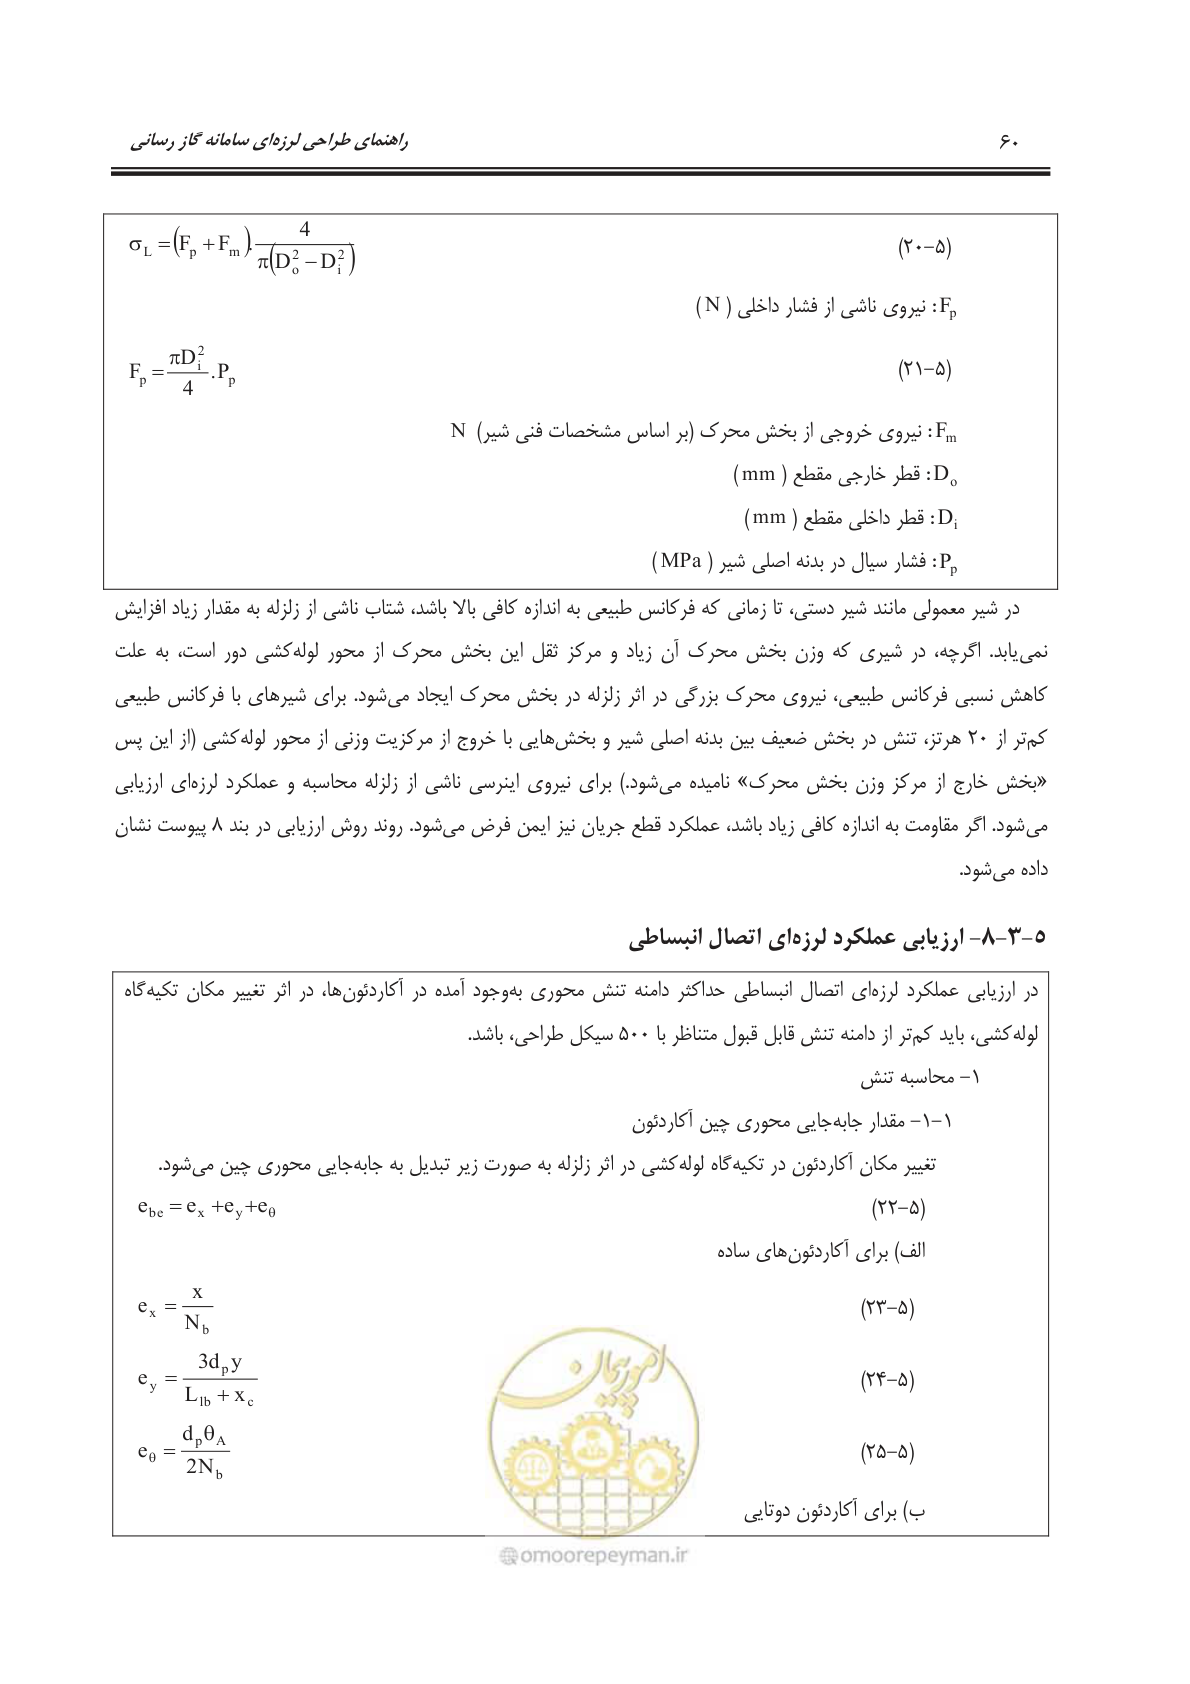 ۶۰
راهنمای طراحی لرزه‌ای سامانه گاز رسانی
(۵-۲۰) σ_L = (F_p + F_m). 4 / π(D_o^2 − D_i^2)
F_p: نیروی ناشی از فشار داخلی ( N )
(۵-۲۱) F_p = πD_i^2 / 4 .P_p
F_m: نیروی خروجی از بخش محرک (بر اساس مشخصات فنی شیر) N
D_o: قطر خارجی مقطع ( mm )
D_i: قطر داخلی مقطع ( mm )
P_p: فشار سیال در بدنه اصلی شیر ( MPa )
در شیر معمولی مانند شیر دستی، تا زمانی که فرکانس طبیعی به اندازه کافی بالا باشد، شتاب ناشی از زلزله به مقدار زیاد افزایش
نمی‌یابد. اگرچه، در شیری که وزن بخش محرک آن زیاد و مرکز ثقل این بخش محرک از محور لوله‌کشی دور است، به علت
کاهش نسبی فرکانس طبیعی، نیروی محرک بزرگی در اثر زلزله در بخش محرک ایجاد می‌شود. برای شیرهای با فرکانس طبیعی
کم‌تر از ۲۰ هرتز، تنش در بخش ضعیف بین بدنه اصلی شیر و بخش‌هایی با خروج از مرکزیت وزنی از محور لوله‌کشی (از این پس
«بخش خارج از مرکز وزن بخش محرک» نامیده می‌شود.) برای نیروی اینرسی ناشی از زلزله محاسبه و عملکرد لرزه‌ای ارزیابی
می‌شود. اگر مقاومت به اندازه کافی زیاد باشد، عملکرد قطع جریان نیز ایمن فرض می‌شود. روند روش ارزیابی در بند ۸ پیوست نشان
داده می‌شود.
۵-۳-۸- ارزیابی عملکرد لرزه‌ای اتصال انبساطی
در ارزیابی عملکرد لرزه‌ای اتصال انبساطی حداکثر دامنه تنش محوری به‌وجود آمده در آکاردئون‌ها، در اثر تغییر مکان تکیه‌گاه
لوله‌کشی، باید کم‌تر از دامنه تنش قابل قبول متناظر با ۵۰۰ سیکل طراحی، باشد.
۱- محاسبه تنش
۱-۱- مقدار جابه‌جایی محوری چین آکاردئون
تغییر مکان آکاردئون در تکیه‌گاه لوله‌کشی در اثر زلزله به صورت زیر تبدیل به جابه‌جایی محوری چین می‌شود.
(۵-۲۲) e_be = e_x + e_y + e_θ
الف) برای آکاردئون‌های ساده
(۵-۲۳) e_x = x / N_b
(۵-۲۴) e_y = 3d_p y / L_lb + x_c
(۵-۲۵) e_θ = d_p θ_A / 2N_b
ب) برای آکاردئون دوتایی
امور پیمان
@omoorepeyman.ir